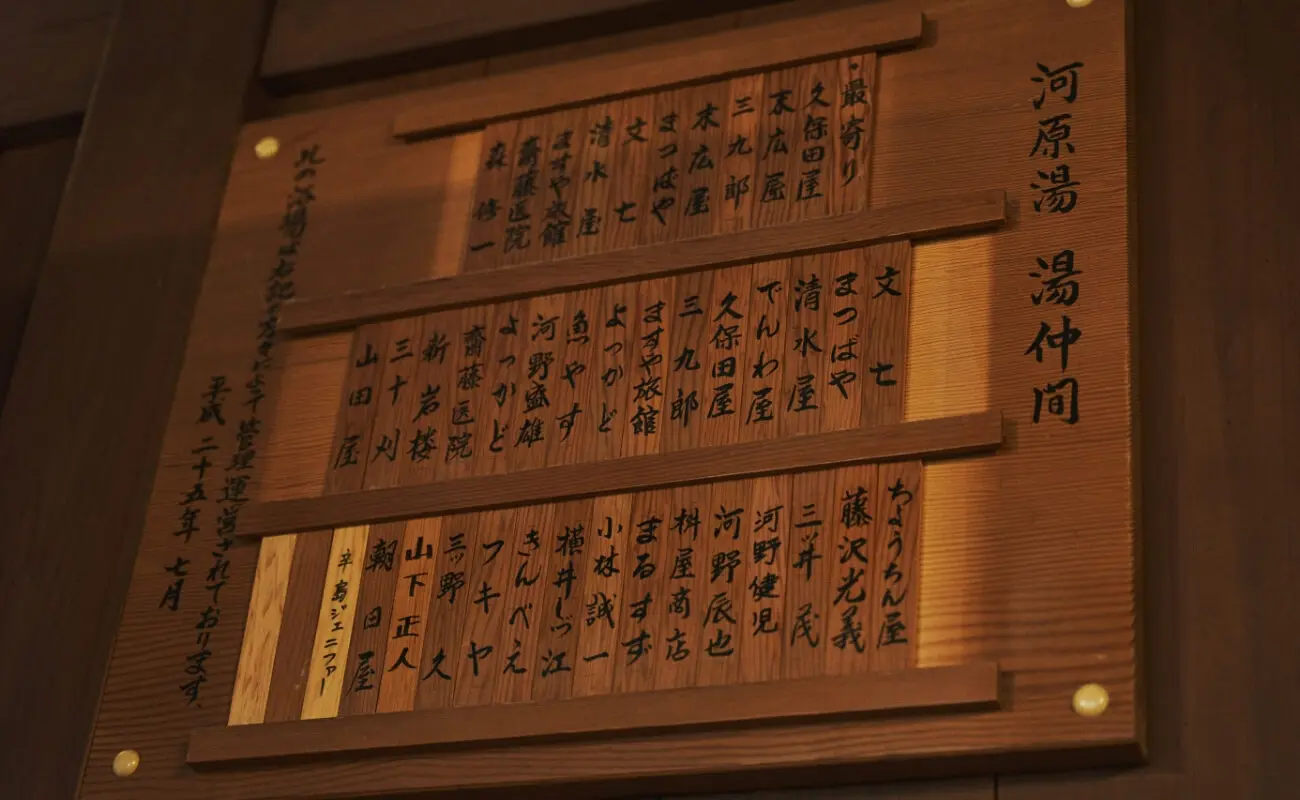 河原湯 湯仲間
・最寄り
久保田屋
末広屋
三九郎
末広屋
まつばや
文七
清水屋
ますや旅館
齋藤医院
森修一
文七
まつばや
清水屋
でんわ屋
久保田屋
三九郎
ますや旅館
よっかど
魚やす
河野盛雄
よっかど
齋藤医院
新岩楼
三十刈
山田屋
ちょうちん屋
藤沢光義
三井茂
河野健児
河野辰也
料屋商店
まるすず
小林誠一
横井しづ江
きんべえ
フキヤ
三ッ野久
山下正人
朝日屋
辛島ジェニファー
此の浴場は右記の方々によ干管理運営されております。
平成二十五年七月